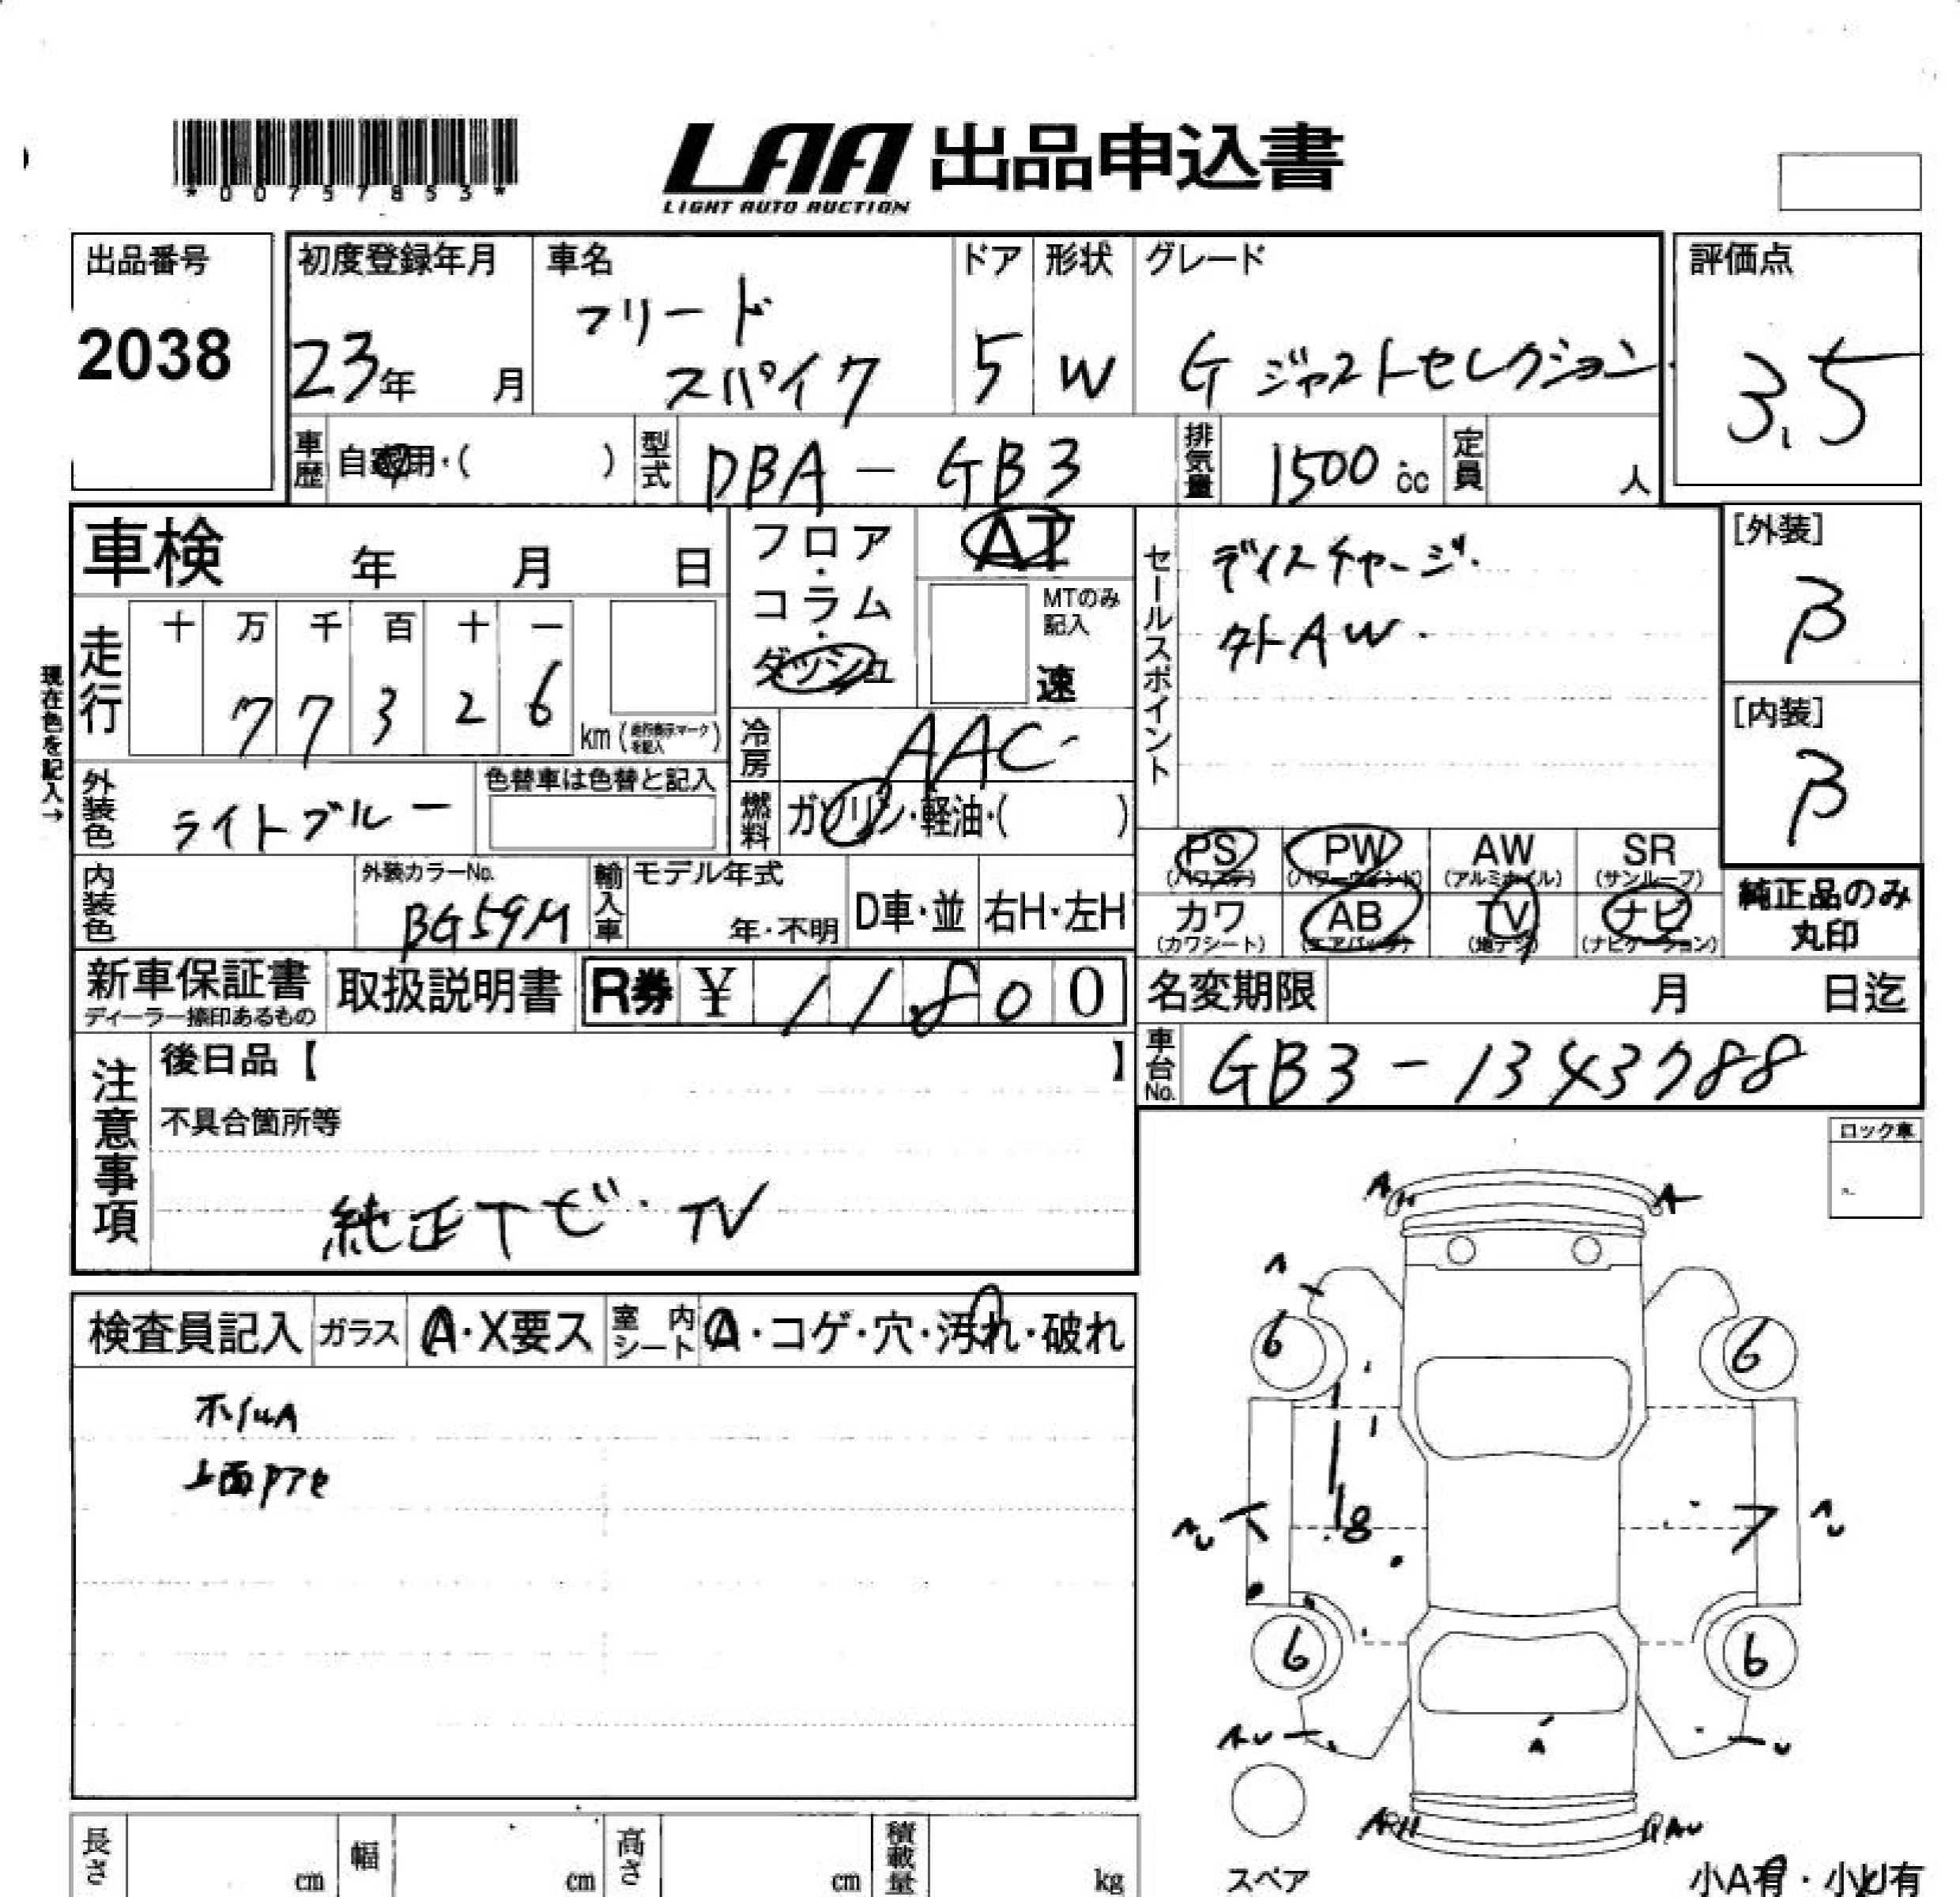 *00757853*
LAA 出品申込書
LIGHT AUTO AUCTION
出品番号
2038
初度登録年月
23年 月
車名
フリード
スパイク
ドア
5
形状
W
グレード
G ジャストセレクション
評価点
3.5
車歴 自家用・( )
型式 DBA-GB3
排気量 1500 cc
定員 人
車検 年 月 日
フロア・コラム・ダッシュ
AT
MTのみ記入
速
セールスポイント
ディスチャージ.
外AW.
[外装]
β
[内装]
β
現在色を記入→
走行
十 万 千 百 十 一
7 7 3 2 6
km (走行表示マークを記入)
冷房 AAC
燃料 ガソリン・軽油・( )
外装色 ライトブルー
色替車は色替と記入
内装色
外装カラーNo.
BG59M
輸入車
モデル年式
年・不明
D車・並
右H・左H
PS (パワステ)
PW (パワーウィンド)
AW (アルミホイル)
SR (サンルーフ)
カワ (カワシート)
AB (エアバッグ)
TV (地デジ)
ナビ (ナビゲーション)
純正品のみ
丸印
新車保証書
ディーラー捺印あるもの
取扱説明書
R券 ¥ 11.800
名変期限 月 日迄
車台No. GB3-1343788
注意事項
後日品【 】
不具合箇所等
純正ナビ・TV
ロック車
検査員記入
ガラス A・X要ス
室内シート A・コゲ・穴・汚れ・破れ
ホイルA
A
A
6
6
8
6
6
AU
U
A
スペア
小A有・小U有
長さ cm
幅 cm
高さ cm
積載量 kg